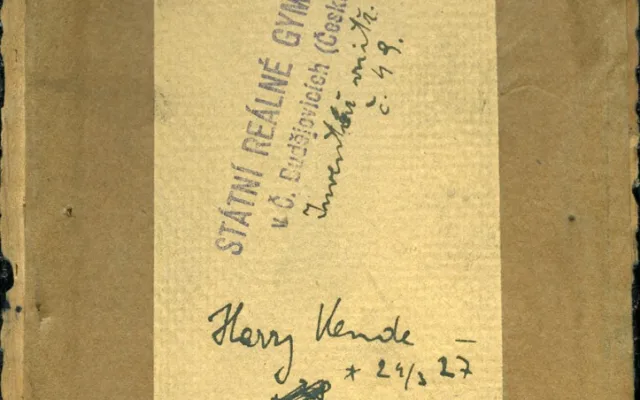 STÁTNÍ REÁLNÉ GYM
v Č. Budějovicích (Česk
Inventář vnitř.
č. 49.
Harry Kende –
* 24/3 27